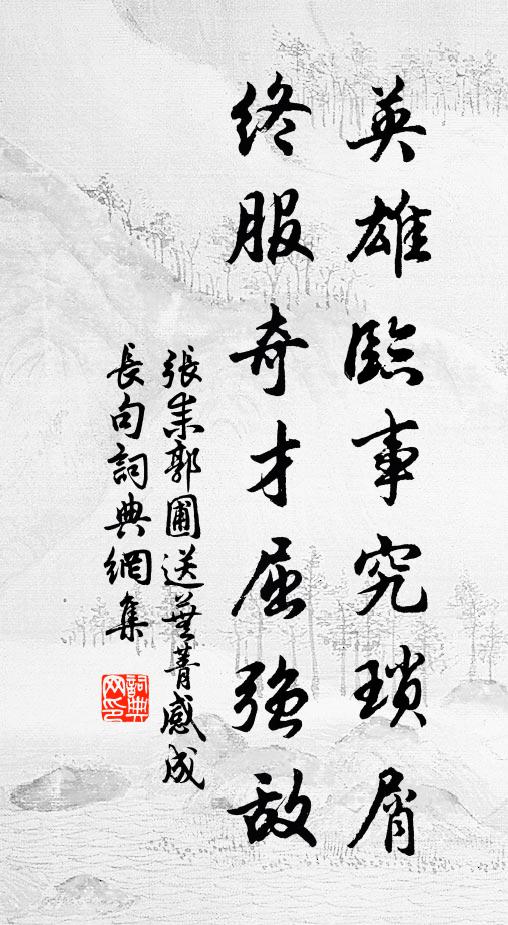 英雄臨事究瑣屑
終服奇才屈強敌
張耒郭圃送蕪菁感成
長句詞典網集
詞典网印